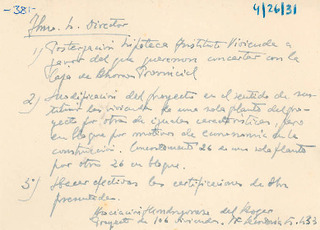 -38-
4/26/31
Ilmo. Sr. Director
1) Postergación hipoteca Instituto Vivienda a
favor del que queremos concertar con la
Caja de Ahorros Provincial
2) Modificación del proyecto en el sentido de sus-
tituir las viviendas de una sola planta del pro-
yecto por otras de iguales características, pero
en bloque por motivos de economía en la
construcción. Concretamente 26 de una sola planta
por otras 26 en bloque.
3) Hacer efectivas las certificaciones de Obra
presentadas.
Asociación del Hogar
Proyecto de 106 viviendas.